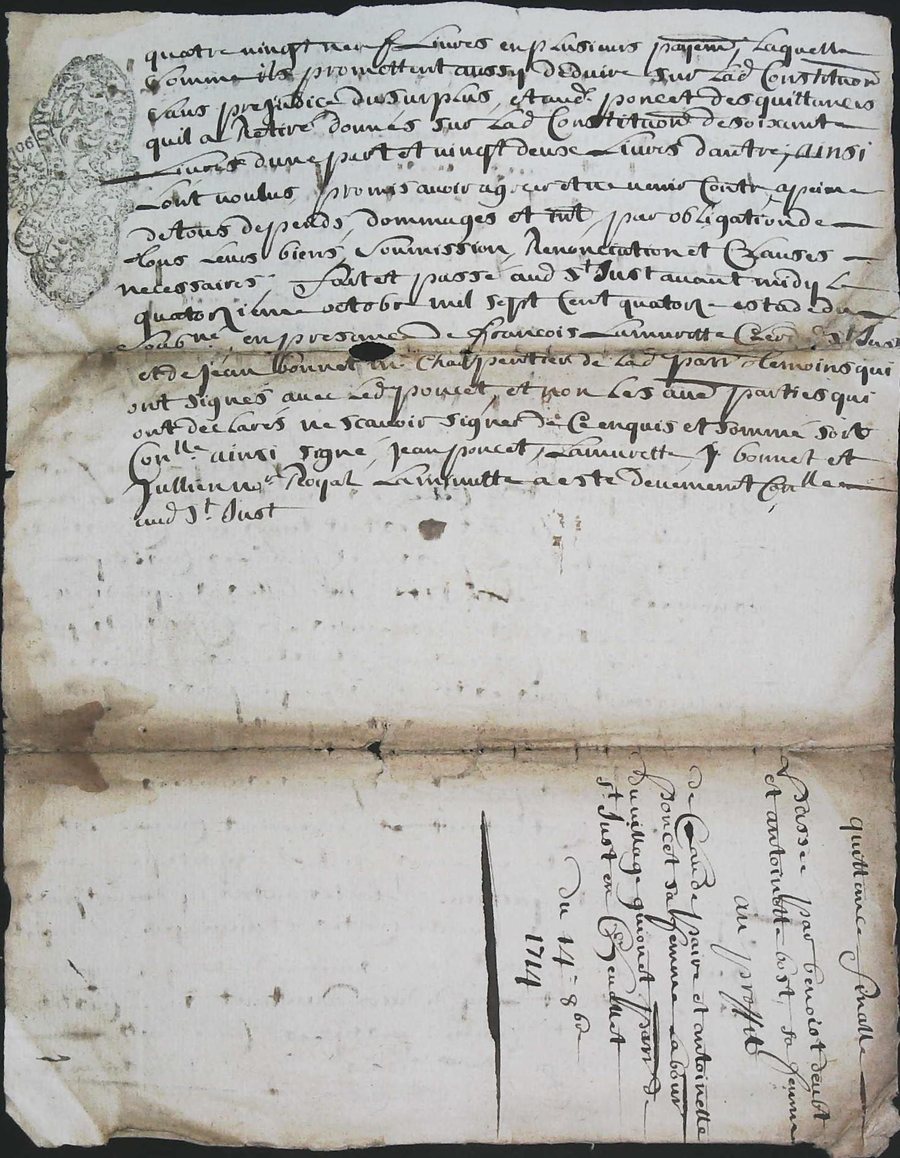 quatre vingt neuf Livres en plusieurs payem, laquelle
Somme ils promettent aussy deduire sur Lad Constitution
sans prejudice du surplus, et aud. poncet des quittances
quil a Retiré données sur Lad Constitution de soixante
Livres dune part et vingt deux Livres dautre, ainsi
Lont voulus promis avoir agreer et ne venir Contre, apeine
de tous depends, dommages et int, par obligation de
tous Leurs biens, soumission, Renonciation et Clauses
necessaires, fait et passé aud St Just avant midy Le
quatorzieme octobre mil sept Cent quatorze estade du
en presence de francois Lamurette Clerc St Just
et de jean bonnet me Charpentier de lad parr temoins qui
ont signés avec Led poncet, et non Les autt parties qui
ont declarés ne scavoir signer de Ce enquis et sommé soit
Conlle ainsi signé, jean poncet, Lamurette, J bonnet et
Jullien nore Royal La minutte a esté deuement Conlle
aud St Just
quittance finalle
passée par benoist deubt
et antoinette bost, sa femme
au proffit
de Claude paire et antoinette
poncet sa femme Labour
du village guionet parr de
st Just en Chevallet
du 14e 8bre
1714